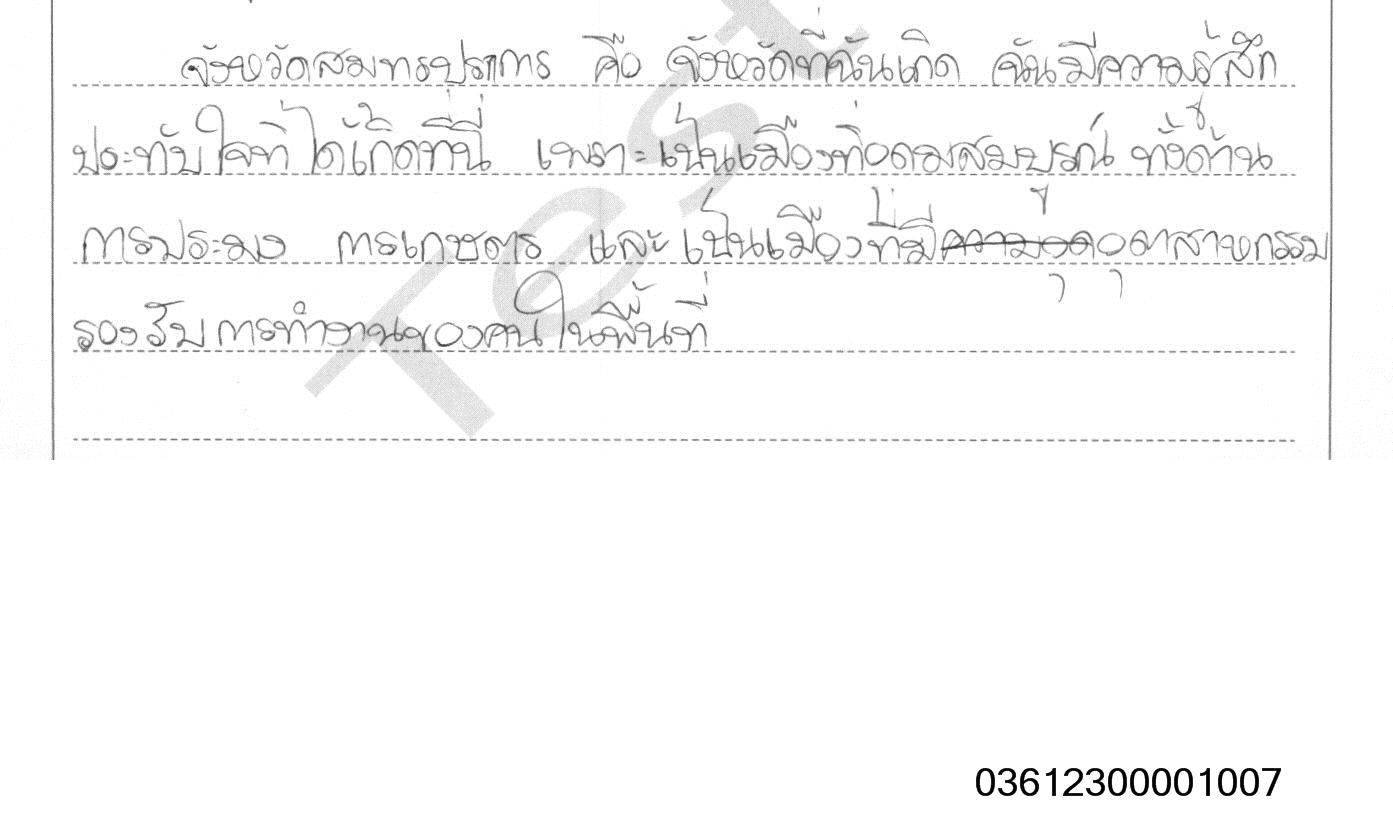 จังหวัดสมุทรปราการ คือ จังหวัดที่ฉันเกิด ฉันมีความรู้สึก
ประทับใจที่ได้เกิดที่นี่ เพราะเป็นเมืองที่อุดมสมบูรณ์ ทั้งด้าน
การประมง การเกษตร และเป็นเมืองที่มี อุตสาหกรรม
รองรับการทำงานของคนในพื้นที่
Test
03612300001007